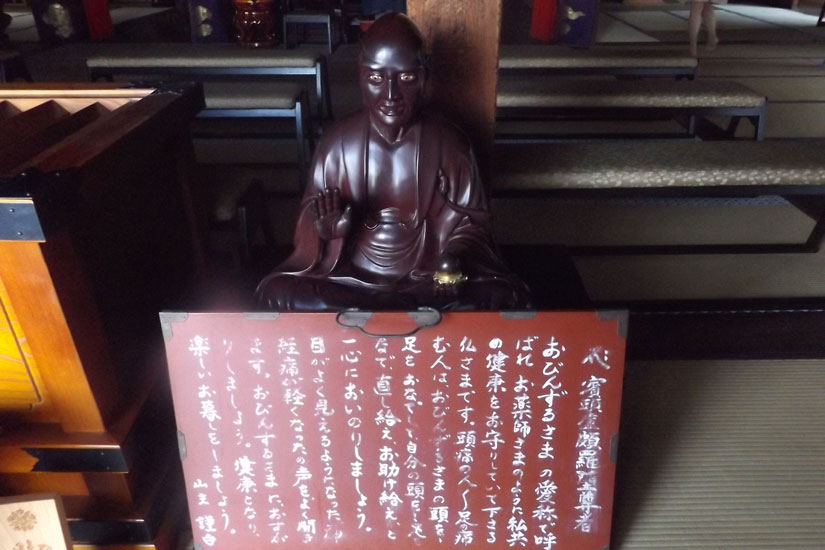 賓頭盧頗羅堕尊者
おびんずるさまの愛称で呼
ばれ、お薬師さまのように私共
の健康をお守りしていて下さる
仏さまです。頭痛の人、足の痛
む人はおびんずるさまの頭を、
足をおなでして自分の頭を、足を
なで、直し給え、お助け給え、と
一心においのりしましょう。
目がよく見えるようになった、神
経痛が軽くなったの声をよく聞き
ます。おびんずるさまにおすが
りしましょう。健康となり、
楽しいお暮しをしましょう。
山主 謹白